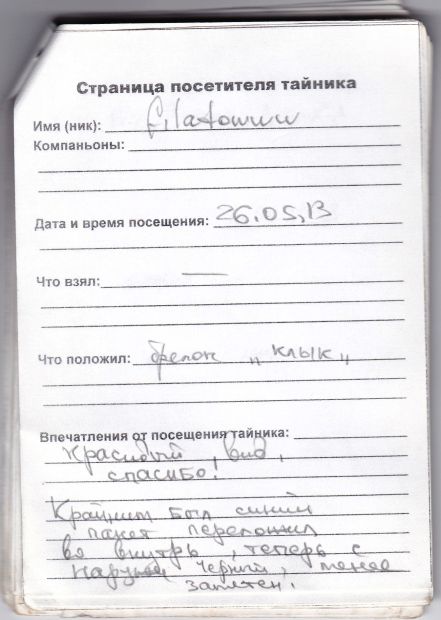 Страница посетителя тайника
Имя (ник): filatowww
Компаньоны:
Дата и время посещения: 26.05.13
Что взял: —
Что положил: брелок „клык„
Впечатления от посещения тайника:
Красивый вид,
спасибо!
Крайним был синий
пакет переложил
внутрь, теперь с
наружи черный, менее
заметен.